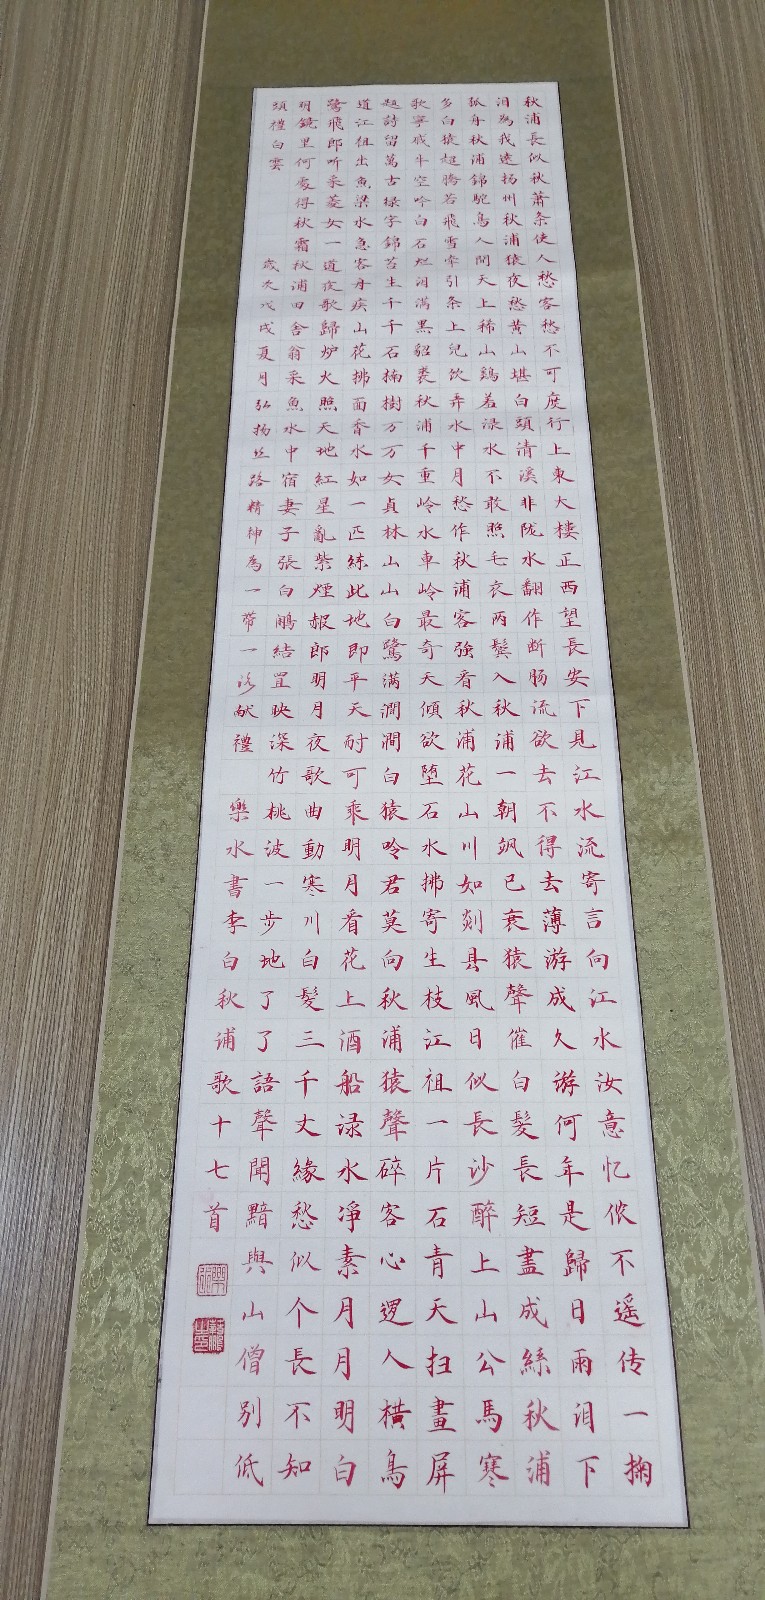 秋浦長似秋蕭条使人愁客愁不可度行上東大樓正西望長安下見江水流寄言向江水汝意忆侬不遥传一掬
泪為我達扬州秋浦猿夜愁黄山堪白頭清溪非陇水翻作断肠流欲去不得去薄游成久游何年是歸日雨泪下
孤舟秋浦錦駝鳥人間天上稀山鷄羞渌水不敢照毛衣两鬓入秋浦一朝飒已衰猿聲催白髮長短盡成絲秋浦
多白猿超腾若飛雪牵引条上兒饮弄水中月愁作秋浦客強看秋浦花山川如剡县風日似長沙醉上山公馬寒
歌寧戚牛空吟白石烂泪满黑貂裘秋浦千重岭水車岭最奇天傾欲堕石水拂寄生枝江祖一片石青天扫畫屏
题詩留萬古绿字錦苔生千千石楠樹万万女貞林山山白鷺满澗澗白猿吟君莫向秋浦猿聲碎客心逻人横鳥
道江祖出魚梁水急客舟疾山花拂面香水如一匹練此地即平天耐可乘明月看花上酒船渌水凈素月月明白
鷺飛郎听采菱女一道夜歌歸炉火照天地紅星亂紫煙赧郎明月夜歌曲動寒川白髮三千丈緣愁似个長不知
明鏡里何處得秋霜秋浦田舍翁采魚水中宿妻子張白鷴結罝映深竹桃波一步地了了語聲聞黯與山僧别低
頭禮白雲 歲次戊戌夏月弘扬丝路精神為一带一路献禮 樂水書李白秋浦歌十七首